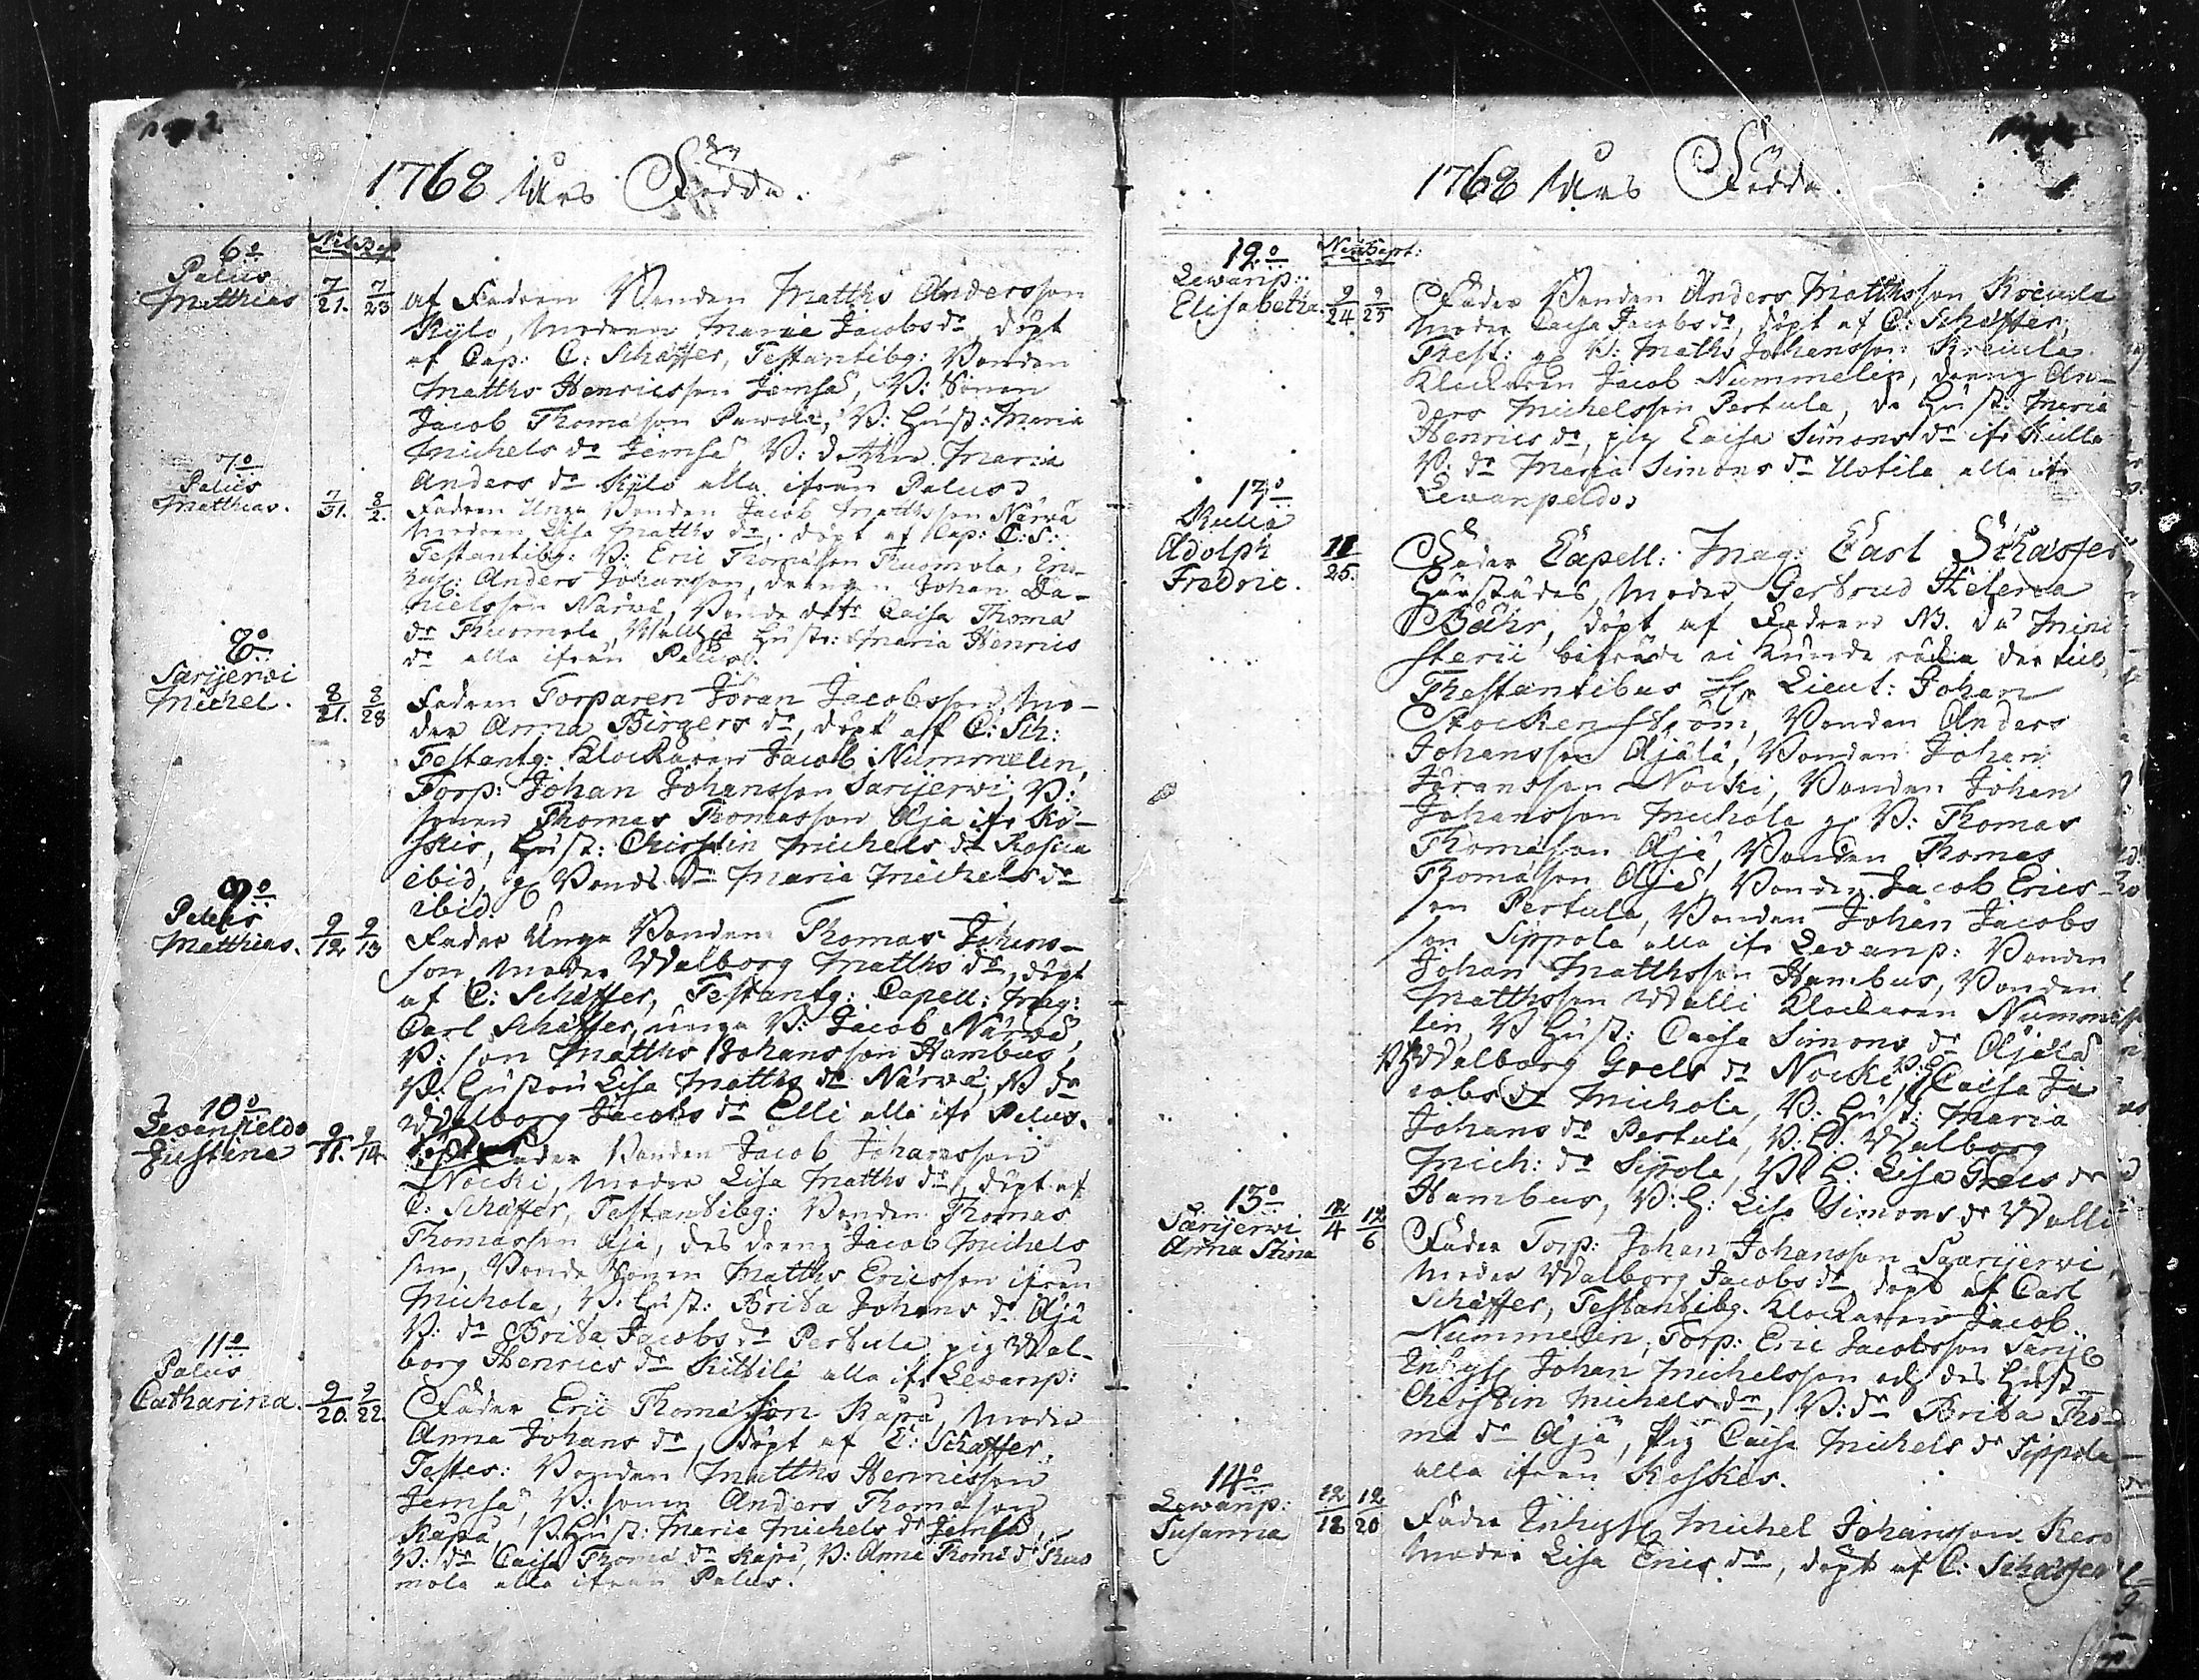 1768 Års Födda.
6º
Palus
Matthias
Nat: Bap
7/21. 7/23
af Fadren Bonden Matths Andersson
Kylö, Modren Maria Jacobs dr, döpt
af Cap: C: Schäffer, Testantibg: Bonden
Matths Henricsson Jemsä, B: Sonen
Jacob Thomasson Pawola, B: Hust: Maria
Michels dr Jemsä B: dotter Maria
Anders dr Kylö alla ifrån Palus
7º
Palus
Matthias.
7/31. 8/2.
Fadren Unga Bonden Jacob Matthsson Närvä
Modren Lisa Matths dr, döpt af Cap: C: S:
Testantibg: B: Eric Thomasson Thuomola, Inhys: Anders Johansson, drängen Johan Danielsson Närvä, Bonde dottr Caisa Thoma
dr Thuomola, Hustr: Maria Henrics
dr alla ifrån Palus.
8º
Sarijerwi
Michel.
8/21. 8/28
Fadren Torparen Jöran Jacobsson, Moder Anna Birgers dr, döpt af C: Sch:
Testantg: Klockaren Jacob Nummelin,
Torp: Johan Johansson Sarijerwi, B:
sonen Thomas Thomasson Äjä ifr Koskis, Hust: Chirstin Michels dr
ibid, g B dr Maria Michels dr
ibid.
9º
Palus
Matthias.
9/12 9/13
Fader Unga Bonden Thomas Johansson, Moder Walborg Matths dr, döpt
af C: Schäffer, Testantg: Capell: Mag:
Carl Schäffer, unga B: Jacob Närvä,
B: son Matths Johansson Hambus,
B: Hustru Lisa Matths dr Närvä, B dr
Walborg Jacobs dr Elli alla ifr Palus.
10º
Levanpeldo
Justina
9/11. 9/14
Fader Bonden Jacob Johansson
Nocki, Moder Lisa Matths dr, döpt af
C: Schäffer, Testantibg: Bonden Thomas
Thomasson Äjä, des dreng Jacob Michelsson, Bonde Sonen Matths Ericsson ifrån
Michola, B: Hust: Brita Johans dr Äjä
B: dr Brita Jacobs dr Pertula pig Walborg Henrics dr Kittilä alla ifr Levanp:
11º
Palus
Catharina.
9/20. 9/22.
Fader Eric Thomasson Käpä, Moder
Anna Johans dr, döpt af C: Schäffer,
Testes: Bonden Matths Henricsson
Jemsä, B: sonen Anders Thomasson
Käpä, B Hust: Maria Michels dr Jemsä,
B: dr Caisa Thoma dr Käpä, B: Anna Thoma dr Thuomola alla ifrån Palus.
1768 Års Födda.
12º
Levanp:
Elisabetha.
Nat Bapt:
9/24 9/25
Fader Bonden Anders Matthsson Kreiula
Moder Caisa Jacobs dr, döpt af C: Schäffer,
Thest: g B: Maths Johansson Kreiula
Klockaren Jacob Nummelin, dräng Anders Michelsson Pertula, dr Hust: Maria
Henrics dr, pig Caisa Simons dr ifr Kulla
B: dr Maria Simons dr Uotila alla ifr
Levanpeldo
17º
Kulla
Adolph
Fredric.
11/25.
Fader Capell: Mag: Carl Schäffer
Härstädes, Moder Gertrud Helena
Bähr, döpt af Fadren NB. då Ministerii biträde ei kunde råda der till,
Thestantibus Hr Lieut: Johan
Stockenström, Bonden Anders
Johansson Äjälä, Bonden Johan
Jöransson Nocki, Bonden Johan
Johansson Michola g B: Thomas
Thomasson Äjä, Bonden Thomas
Thomasson Äjä, Bonden Jacob Ericsson Pertula, Bonden Johan Jacobsson Sippola alla ifr Levanp: Bonden
Johan Matthsson Hambus, Bonden
Matthsson Walli Klockaren Nummelin, B Hust: Caisa Simons dr Äjälä
B H Walborg Grels dr Nocki, B: H Caisa Jacobs dr Michola, B: Hust: Maria
Johans dr Pertula, B: H: Walborg
Mich: dr Sippola, B H: Lisa Grels dr
Hambus, B: H: Lisa Simons dr Walli
13º
Sarijerwi
Anna Stina
12/4 12/6
Fader Torp: Johan Johansson Saarijerwi
Moder Walborg Jacobs dr, döpt af Carl
Schäffer, Testantibg. Klockaren Jacob
Nummelin, Torp: Eric Jacobsson Sarije
Inhys Johan Michelsson och des Hust
Christin Michels dr, B: dr Brita Thoma dr Äjä, Pig Caisa Michels dr Sippola
alla ifrån Koskis.
14º
Levanp:
Susanna
12/18 12/20
Fader Inhys Michel Johansson Kero
Moder Lisa Erics dr, döpt af C: Schäffer